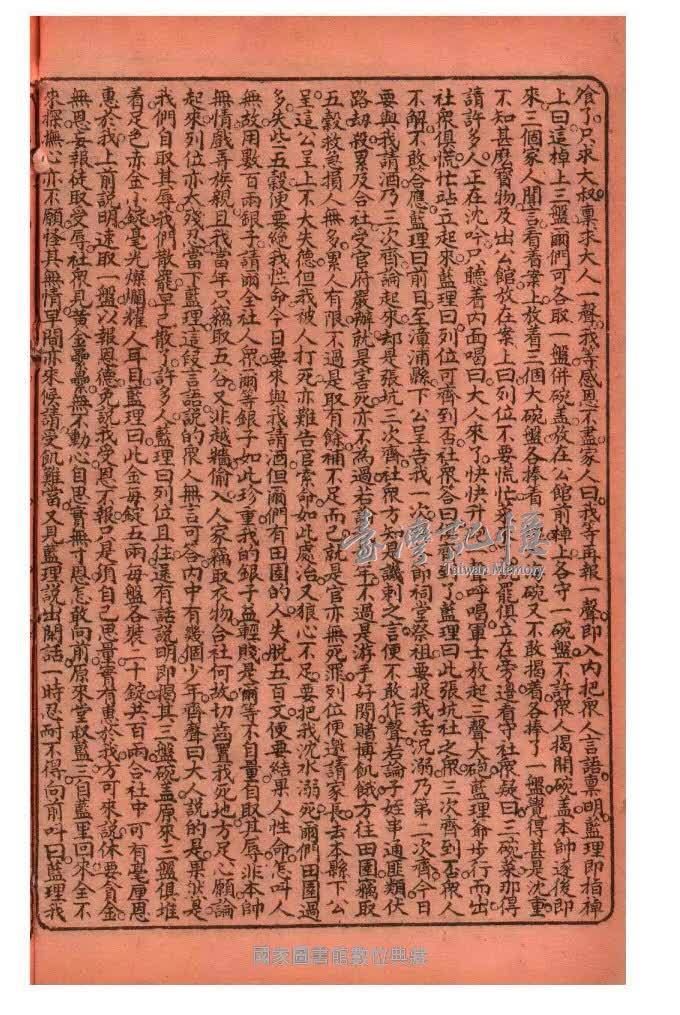 飧了只求大叔稟求大人一聲我等感恩不盡家人曰我等再報一聲即入內把眾人言語稟明藍理即指棹
上曰這棹上三盤爾們可各取一盤併碗盖放在公館前棹上各守一碗盤不許眾人揭開碗盖本帥遂後即
來三個家人聞言看看案上放着三個大碗盤各捧着碗又不敢揭着各捧了一盤覺得甚是沈重
不知甚麽寶物及出公館放在案上曰列位不要慌忙罷俱立在旁邊看守社眾疑曰三碗菜那得
請許多人正在沈吟只聽着內面喝曰大人來了快快升呼喝軍士放起三聲大砲藍理爺步行而出
社眾俱慌忙站立起來藍理曰列位可齊到否社眾答曰齊到了藍理曰此張坑社之眾三次齊到否眾人
不解不敢答應藍理曰前日至漳浦縣下公呈告我一次即祠堂祭祖要捉我活沉溺乃第二次齊今日
要與我請酒乃三次齊論起來却是張坑三次齊社眾方知譏刺之言便不敢作聲若論子姪事適匪類伏
路刼殺累及合社受官府嚴辦就是害死亦不為過若年不過是游手好閒賭博飢餓方往田園竊取
五穀救急損人無多累人有限不過是取有餘補不足而已就是官亦無死罪列位便邀請家長去本縣下公
呈這公呈上不大失德但我被人打死亦難告官索命如此處治又狼心不足要把我沈水溺死爾們田園過
多失些五穀便要絕我性命今日要來與我請酒但爾們有田園的人失脫五百文便要結果人性命怎叫人
無故用數百兩銀子請爾全社人眾爾等銀子如此珍重我的銀子益輕賤是爾等不自量有取其辱非本帥
無情戲弄族親且我當年只竊取五谷又非越牆偷入人家竊取衣物合社何故切齒置我死地方足心願論
起來列位亦太殘忍當下藍理這叚言語說的眾人無言可答內中有幾個少年齊聲曰大人說的是果然是
我們自取其辱我們散罷早已散了許多人藍理曰列位且住還有話說明即揭其三盤碗盖原來三盤俱堆
着足色赤金小錠毫光燦爛耀人耳目藍理曰此金每錠五兩每盤各裝二十錠共三百兩合社中可有毫厘恩
惠於我上前說明速取一盤以報恩德免說我受恩不報只是須自己思量實有惠於我方可來說休要貪金
無恩妄報徒取受辱社眾見黃金纍纍無不動心自思實無寸恩怎敢向前原來堂叔藍三自藍里回來全不
來探撫心亦不願怪其無情早間亦來候請受飢難當又見藍理說出閒話一時忍耐不得向前叫曰藍理我
臺灣記憶
Taiwan Memory
國家圖書館數位典藏